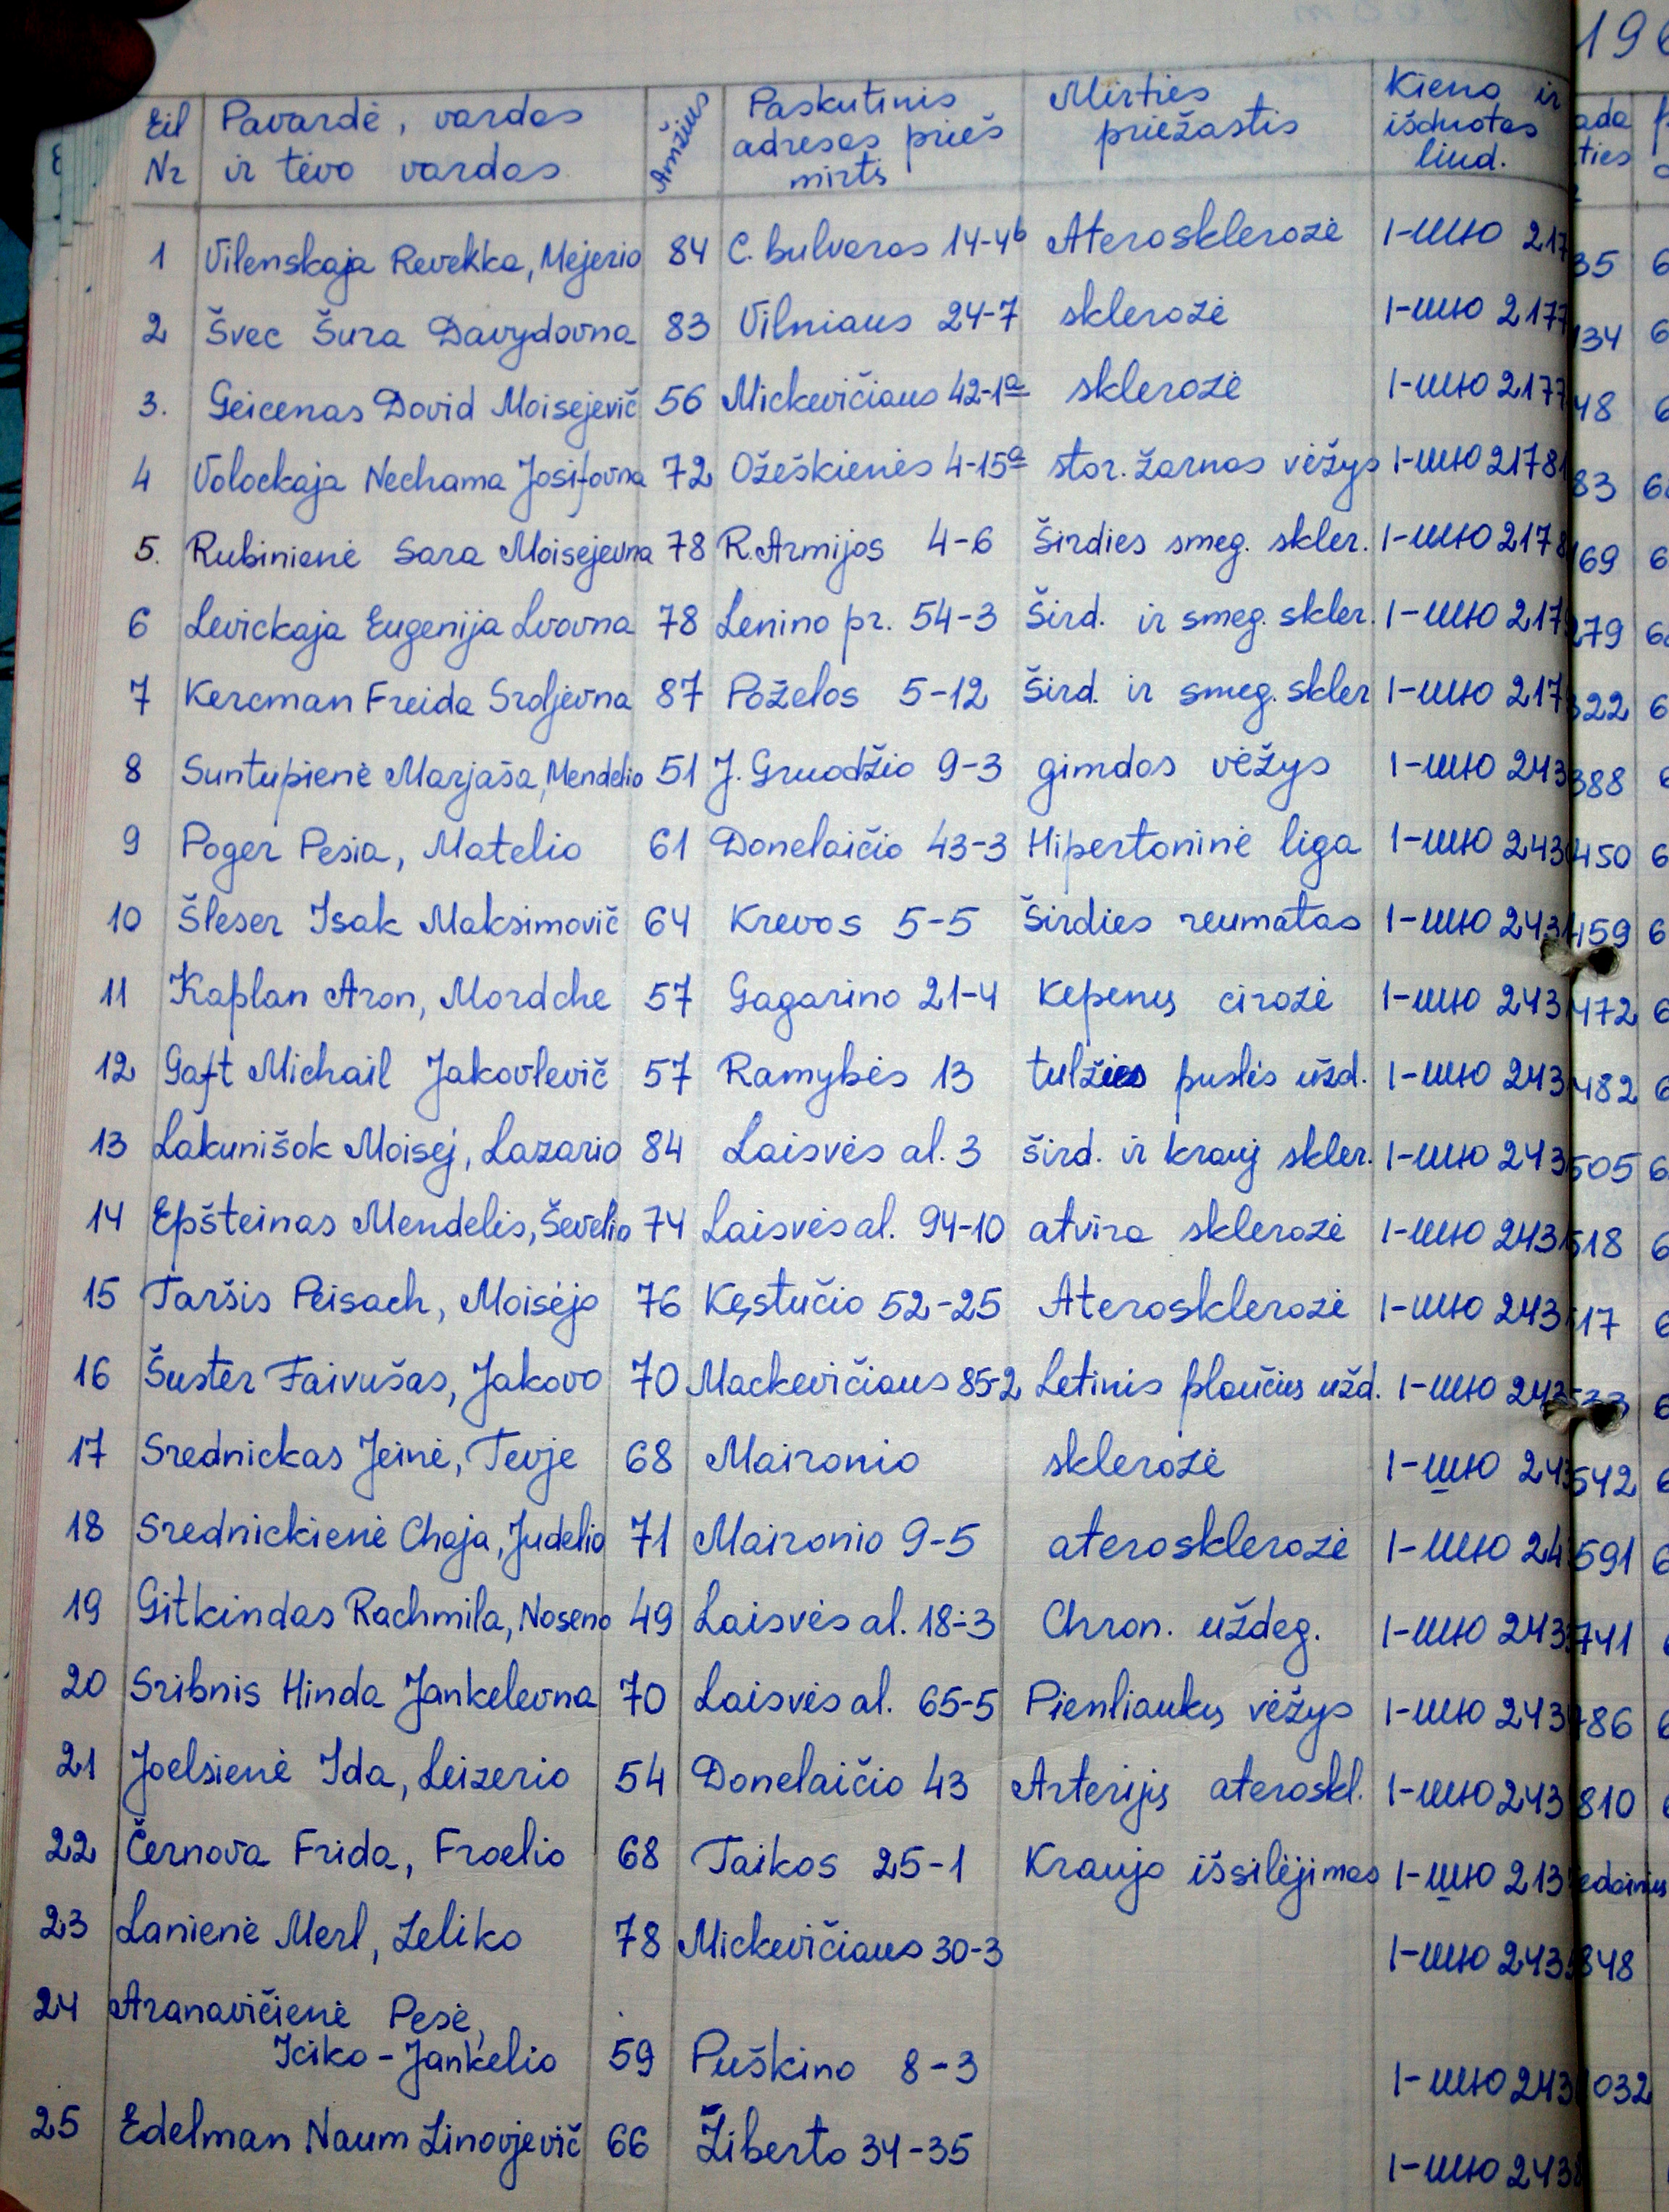 196
Eil Nr Pavardė, vardas ir tėvo vardas Amžius Paskutinis adresas prieš mirtį Mirties priežastis Kieno ir išduotas liud.
1 Vilenskaja Revekka, Mejerio 84 C. bulvaras 14-4b Aterosklerozė I-ШЮ 217
2 Švec Šura Davydovna 83 Vilniaus 24-7 sklerozė I-ШЮ 2177
3. Geicenas Dovid Moisejevič 56 Mickevičiaus 42-1a sklerozė I-ШЮ 2177
4 Volockaja Nechama Josifovna 72 Ožeškienės 4-15a stor. žarnos vėžys I-ШЮ 21781
5. Rubinienė Sara Moisejevna 78 R. Armijos 4-6 Širdies smeg. skler. I-ШЮ 2178
6 Levickaja Eugenija Lvovna 78 Lenino pr. 54-3 Šird. ir smeg. skler. I-ШЮ 217
7 Kercman Freida Sroljevna 87 Poželos 5-12 šird. ir smeg. skler I-ШЮ 217
8 Suntupienė Marjaša, Mendelio 51 J. Gruodžio 9-3 gimdos vėžys I-ШЮ 243
9 Poger Pesia, Matelio 61 Donelaičio 43-3 Hipertoninė liga I-ШЮ 243
10 Šleser Isak Maksimovič 64 Krevos 5-5 Širdies reumatas I-ШЮ 243
11 Kaplan Aron, Mordche 57 Gagarino 21-4 Kepenų cirozė I-ШЮ 243
12 Gaft Michail Jakovlevič 57 Ramybės 13 tulžies puslės užd. I-ШЮ 243
13 Lakunišok Moisej, Lazario 84 Laisvės al. 3 šird. ir krauj skler. I-ШЮ 243
14 Epšteinas Mendelis, Ševelio 74 Laisvės al. 94-10 atvira sklerozė I-ШЮ 243
15 Taršis Peisach, Moisėjo 76 Kęstučio 52-25 Aterosklerozė I-ШЮ 243
16 Šuster Faivušas, Jakovo 70 Mackevičiaus 85-2 Letinis plaučių užd. I-ШЮ 243
17 Srednickas Jeinė, Tevje 68 Maironio sklerozė I-ШЮ 243
18 Srednickienė Chaja, Judelio 71 Maironio 9-5 aterosklerozė I-ШЮ 24
19 Gitkindas Rachmila, Noseno 49 Laisvės al. 18-3 Chron. uždeg. I-ШЮ 243
20 Sribnis Hinda Jankelevna 70 Laisvės al. 65-5 Pienliaukų vėžys I-ШЮ 243
21 Joelsienė Ida, Leizerio 54 Donelaičio 43 Arterijų ateroskl. I-ШЮ 243
22 Černova Frida, Froelio 68 Taikos 25-1 Kraujo išsilėjimas I-ШЮ 213
23 Lanienė Merl, Zeliko 78 Mickevičiaus 30-3 I-ШЮ 243
24 Aranavičienė Pesė,
Iciko-Jankelio 59 Puškino 8-3 I-ШЮ 243
25 Edelman Naum Zinovjevič 66 Žiberto 34-35 I-ШЮ 243